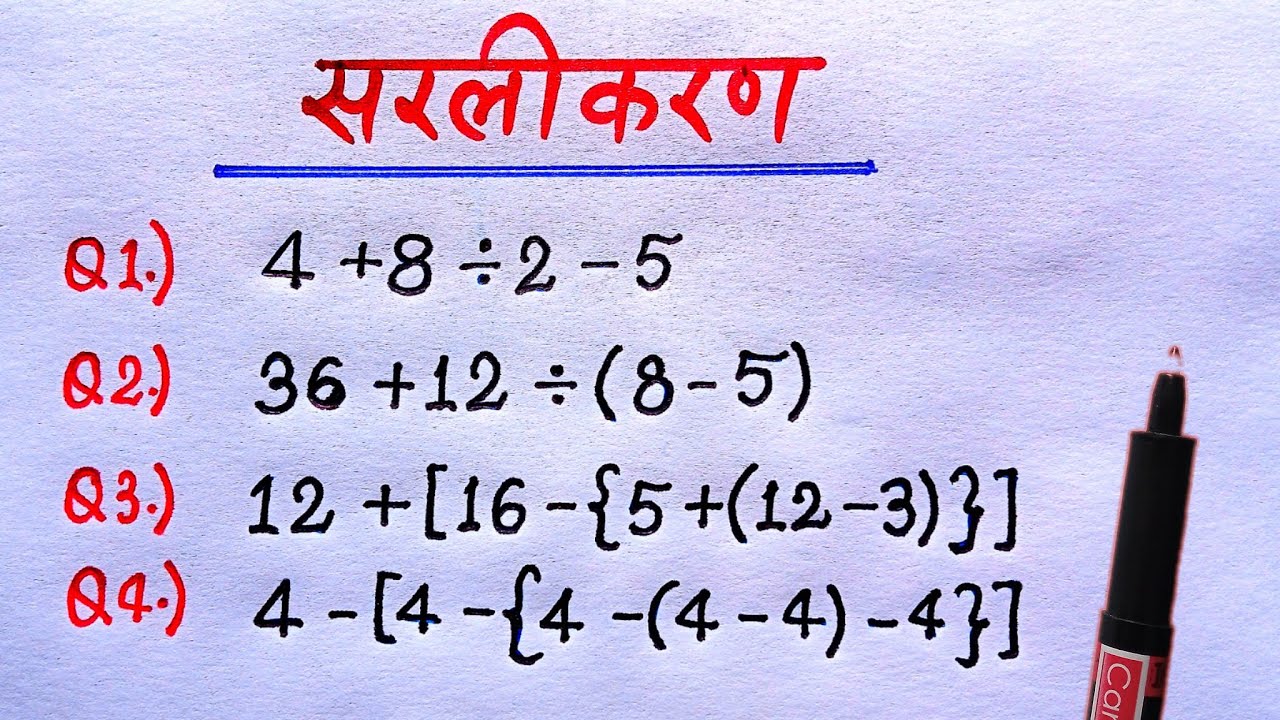 सरलीकरण
Q1.) 4 + 8 ÷ 2 - 5
Q2.) 36 + 12 ÷ (8 - 5)
Q3.) 12 + [16 - {5 + (12 - 3)}]
Q4.) 4 - [4 - {4 - (4 - 4) - 4}]